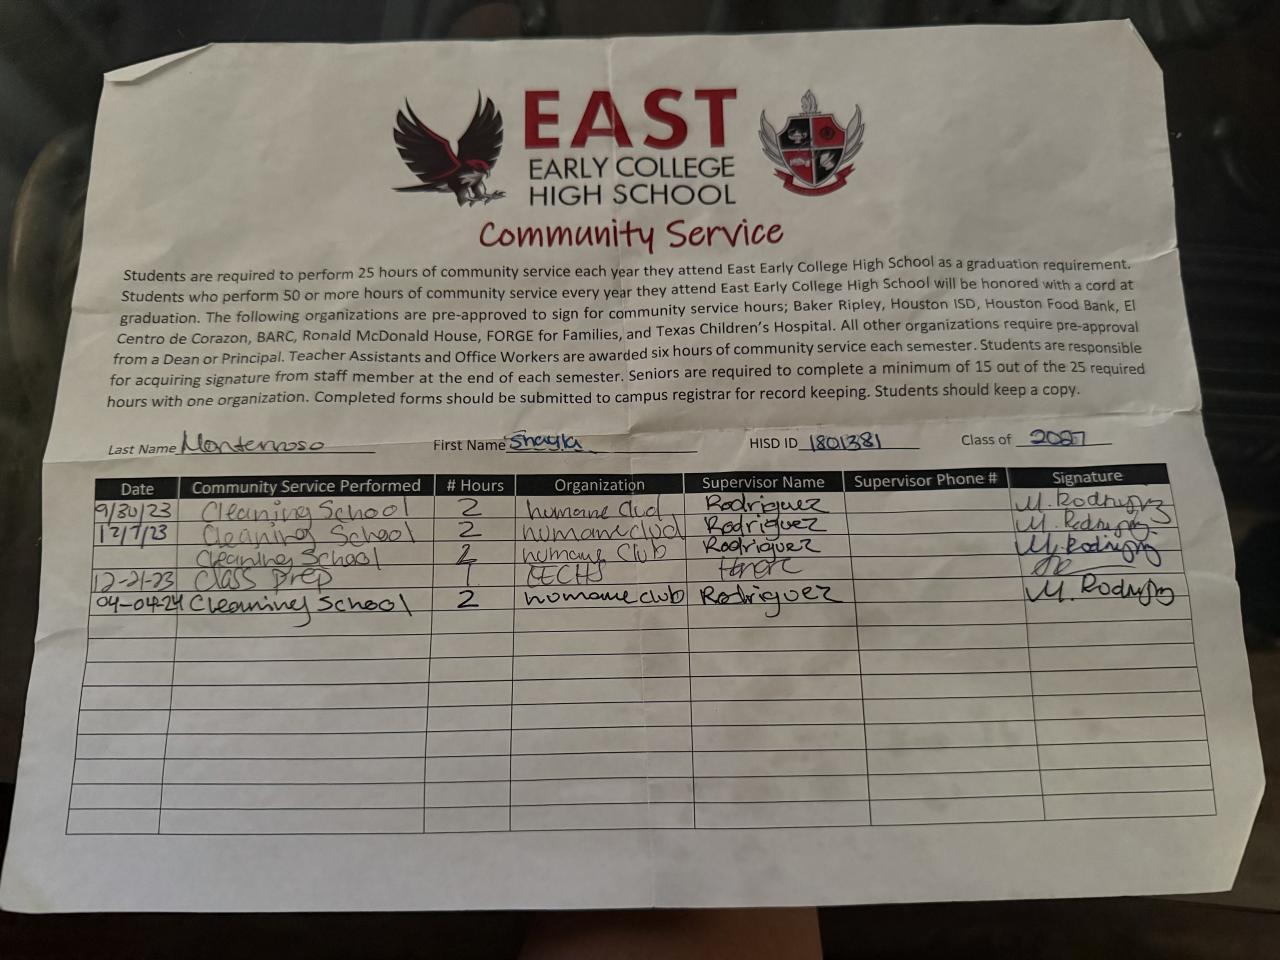 EAST
EARLY COLLEGE
HIGH SCHOOL
Community Service
Students are required to perform 25 hours of community service each year they attend East Early College High School as a graduation requirement.
Students who perform 50 or more hours of community service every year they attend East Early College High School will be honored with a cord at
graduation. The following organizations are pre-approved to sign for community service hours; Baker Ripley, Houston ISD, Houston Food Bank, El
Centro de Corazon, BARC, Ronald McDonald House, FORGE for Families, and Texas Children's Hospital. All other organizations require pre-approval
from a Dean or Principal. Teacher Assistants and Office Workers are awarded six hours of community service each semester. Students are responsible
for acquiring signature from staff member at the end of each semester. Seniors are required to complete a minimum of 15 out of the 25 required
hours with one organization. Completed forms should be submitted to campus registrar for record keeping. Students should keep a copy.
Last Name Monterroso First Name Shayla HISD ID 1801381 Class of 2027
Date Community Service Performed # Hours Organization Supervisor Name Supervisor Phone # Signature
9/30/23 Cleaning School 2 humane club Rodriguez M. Rodriguez
12/7/23 Cleaning School 2 humane club Rodriguez M. Rodriguez
Cleaning School 2 humane Club Rodriguez M. Rodriguez
12-21-23 Class prep 1 EECHS
04-04-24 Cleaning School 2 humane club Rodriguez M. Rodriguez